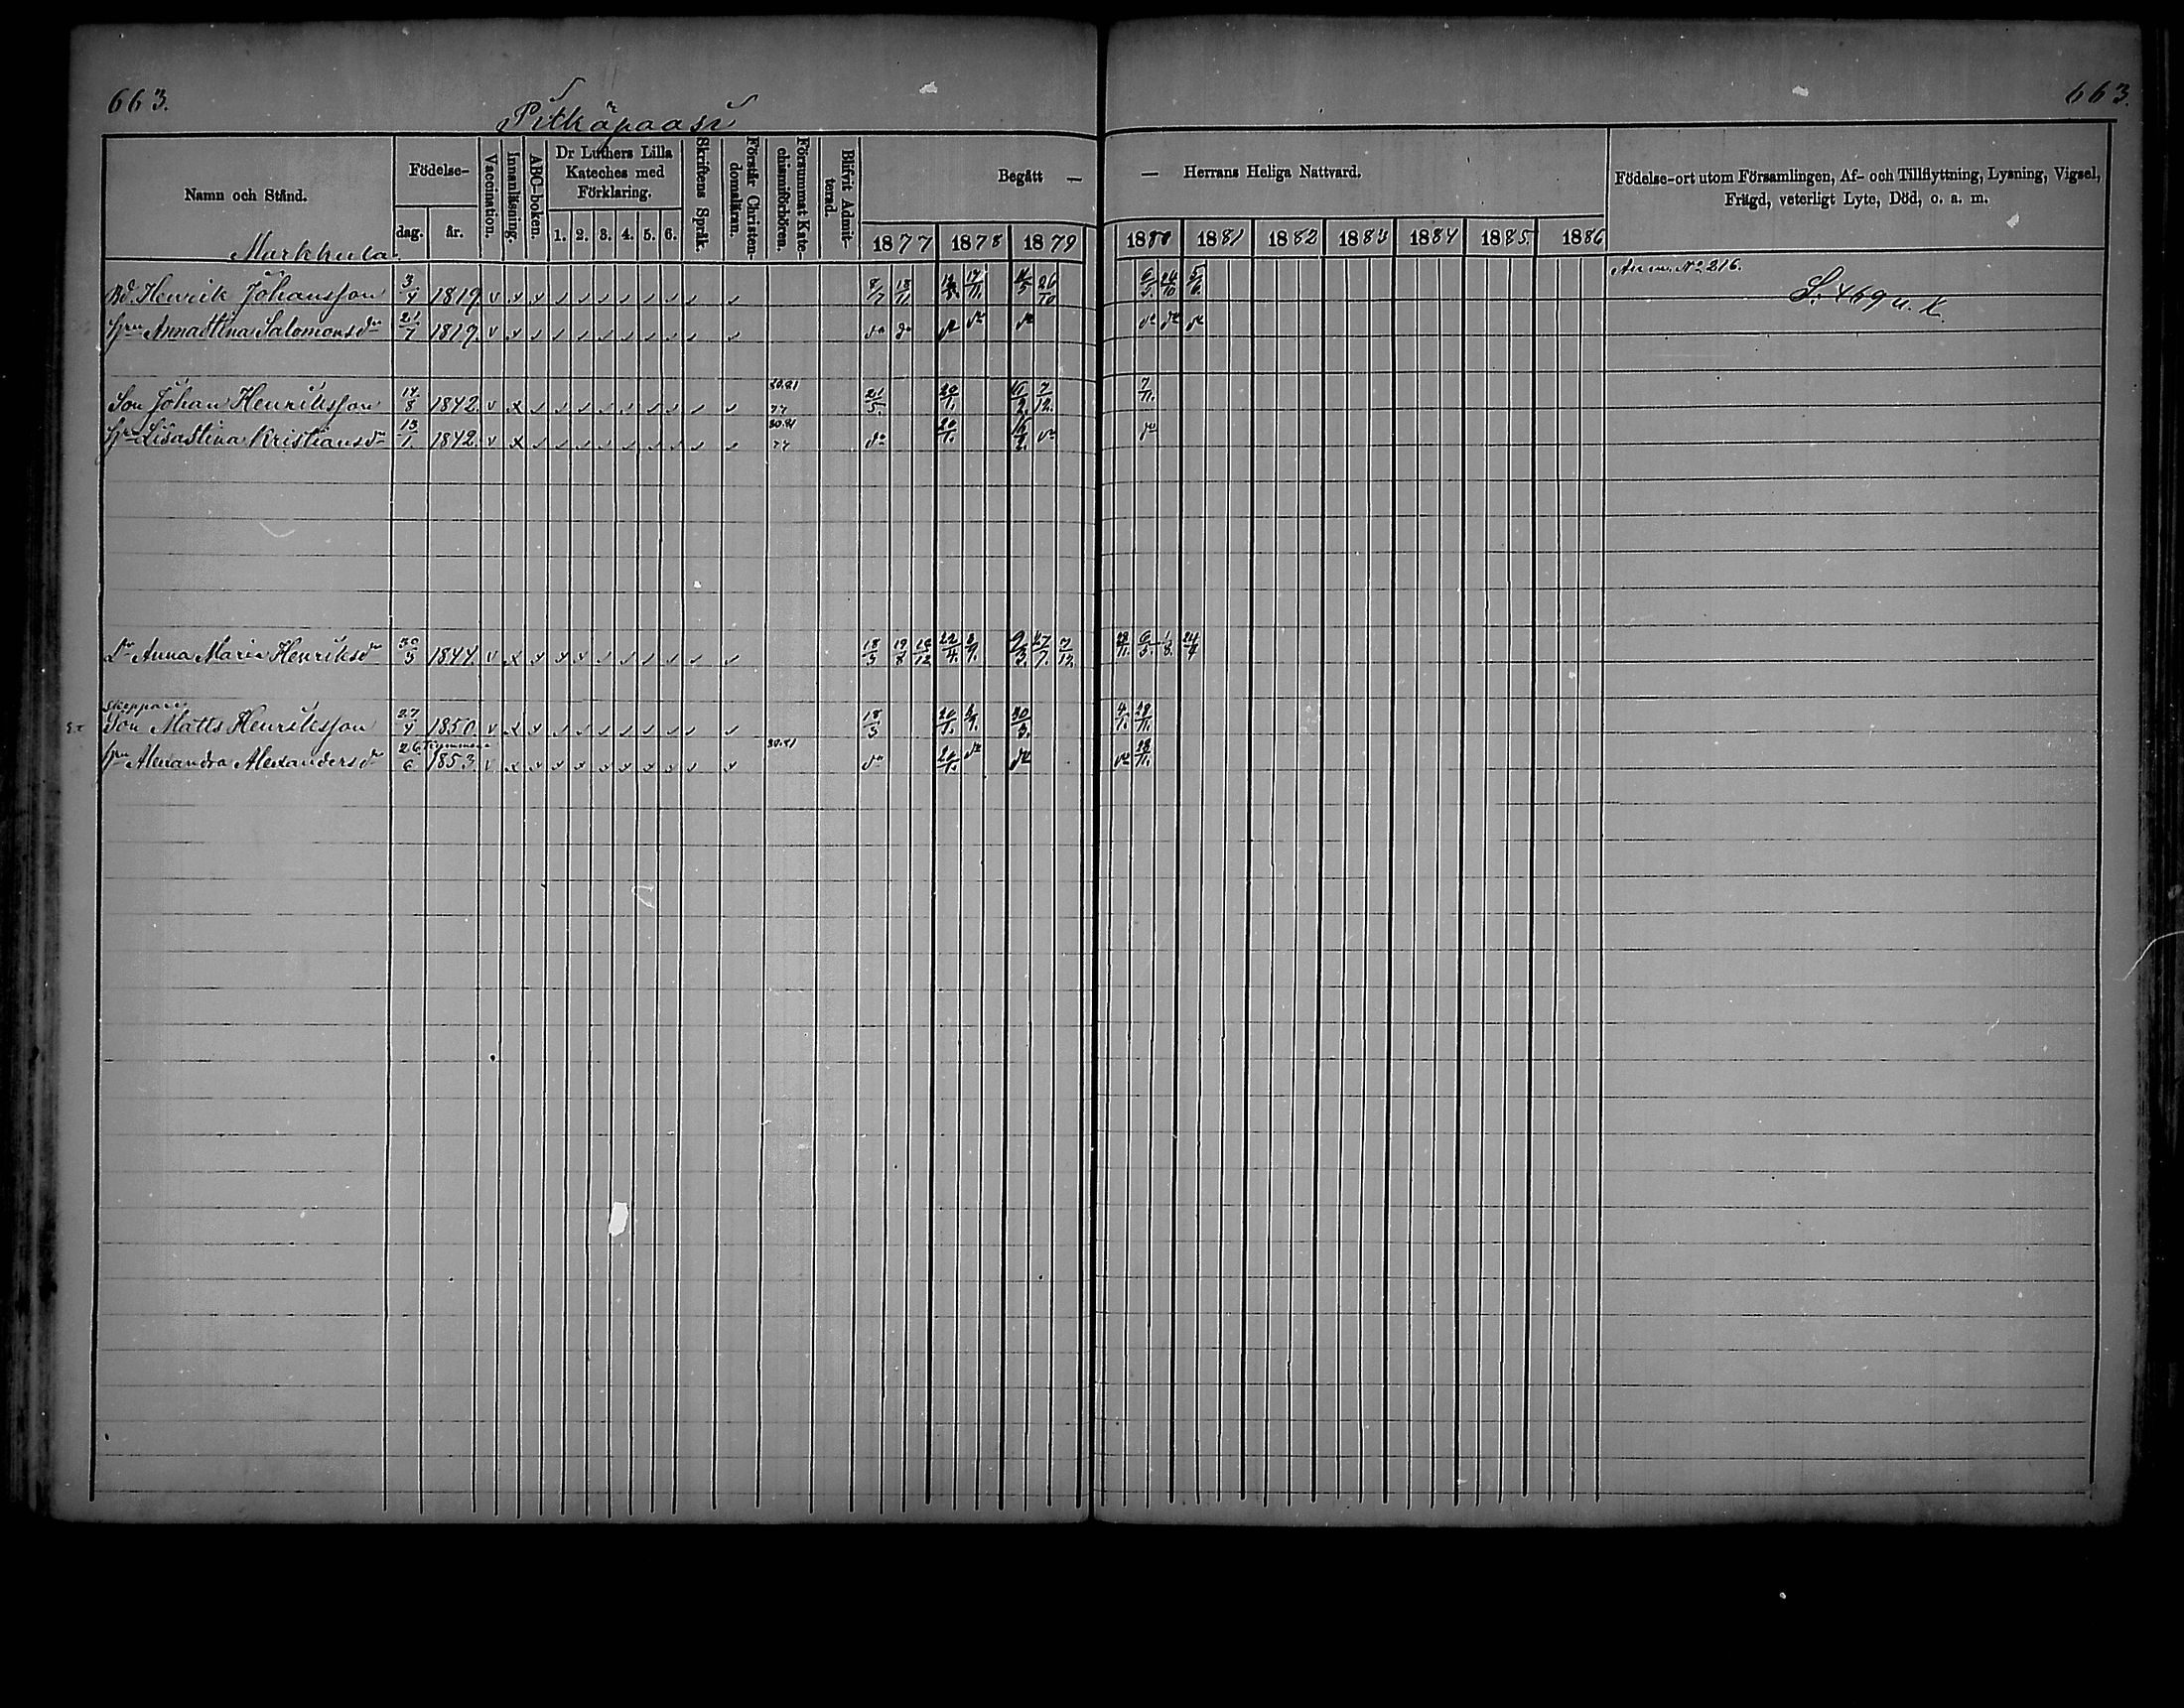 663.
663.
Pitkäpaasi
Namn och Stånd.
Födelse-
dag.
år.
Vaccination.
Innanläsning.
ABC-boken.
Dr Luthers Lilla
Kateches med
Förklaring.
1. 2. 3. 4. 5. 6.
Skriftens Språk.
Förstår Christen-
domsläran.
Försummat Kate-
chismiförhören.
Blifvit Admit-
terad.
Begått —
— Herrans Heliga Nattvard.
1877 1878 1879 1880 1881 1882 1883 1884 1885. 1886
Födelse-ort utom Församlingen, Af- och Tillflyttning, Lysning, Vigsel,
Frägd, veterligt Lyte, Död, o. a. m.
Markkula.
Bd. Henrik Johansson 3/4 1819 v x x 8/7 18/11 17/11 4/5 26/10 6/5. 24/10 5/6.
No 216.
S. 469 u. K.
Hru Anna Stina Salomonsdr 21/7 1819. v x do do do do do do do do
Son Johan Henriksson 17/8 1842. v x 30.81 77 21/5. 20/1. 16/2. 7/12. 7/11.
Hru Lisa Stina Kristiansdr 13/1. 1842. v x 30.81 77 do 20/1. 16/2. do do
Dr Anna Maria Henriksdr 30/3 1844. v x x x x 18/3 19/8 16/12 22/4. 8/9. 9/3. 27/7. 7/12. 28/11. 6/5. 1/8. 24/4
Skeppare
Son Matts Henriksson 27/4 1850 v x x 18/3 20/1. 8/9. 30/3. 4/1. 28/11.
Hru Alexandra Alexandersdr 26/6 1853. v x x x x x x x x x 30.81 do 20/1. do do do 28/11.